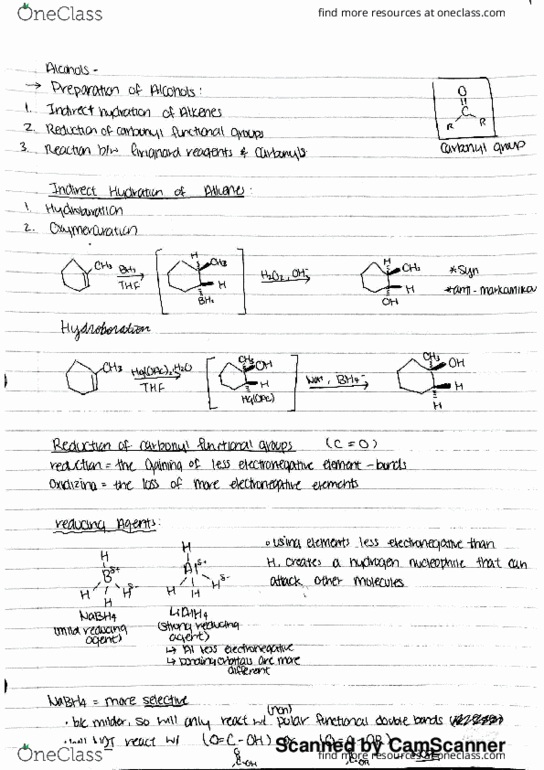 OneClass
find more resources at oneclass.com
Alcohols -
→ Preparation of Alcohols:
1. Indirect hydration of Alkenes
2. Reduction of carbonyl functional groups
3. Reaction b/w Grignard reagents & carbonyls
O
C
R R
Carbonyl group
Indirect Hydration of Alkenes:
1. Hydroboration
2. Oxymercuration
CH3 BH3 THF
H CH3 H BH2
H2O2, OH-
H CH3 H OH
*syn
*anti-markovnikov
Hydroboration
CH3 Hg(OAc), H2O THF
CH3 OH H Hg(OAc)
BH4-
CH3 OH H H
Reduction of carbonyl functional groups (C=O)
reduction = the gaining of less electronegative element-bonds
Oxidizing = the loss of more electronegative elements
reducing Agents:
H B δ+ H H H δ-
H Al δ+ H H H δ-
NaBH4
(mild reducing agent)
LiAlH4
(strong reducing agent)
↳ Al less electronegative
↳ bonding orbitals are more different
• using elements less electronegative than
H, creates a hydrogen nucleophile that can
attack other molecules
NaBH4 = more selective
(non)
• b/c milder, so will only react w/ polar functional double bonds
• will NOT react w/ (O=C-OH) or (O=C-OR)
Scanned by CamScanner
OneClass
find more resources at oneclass.com